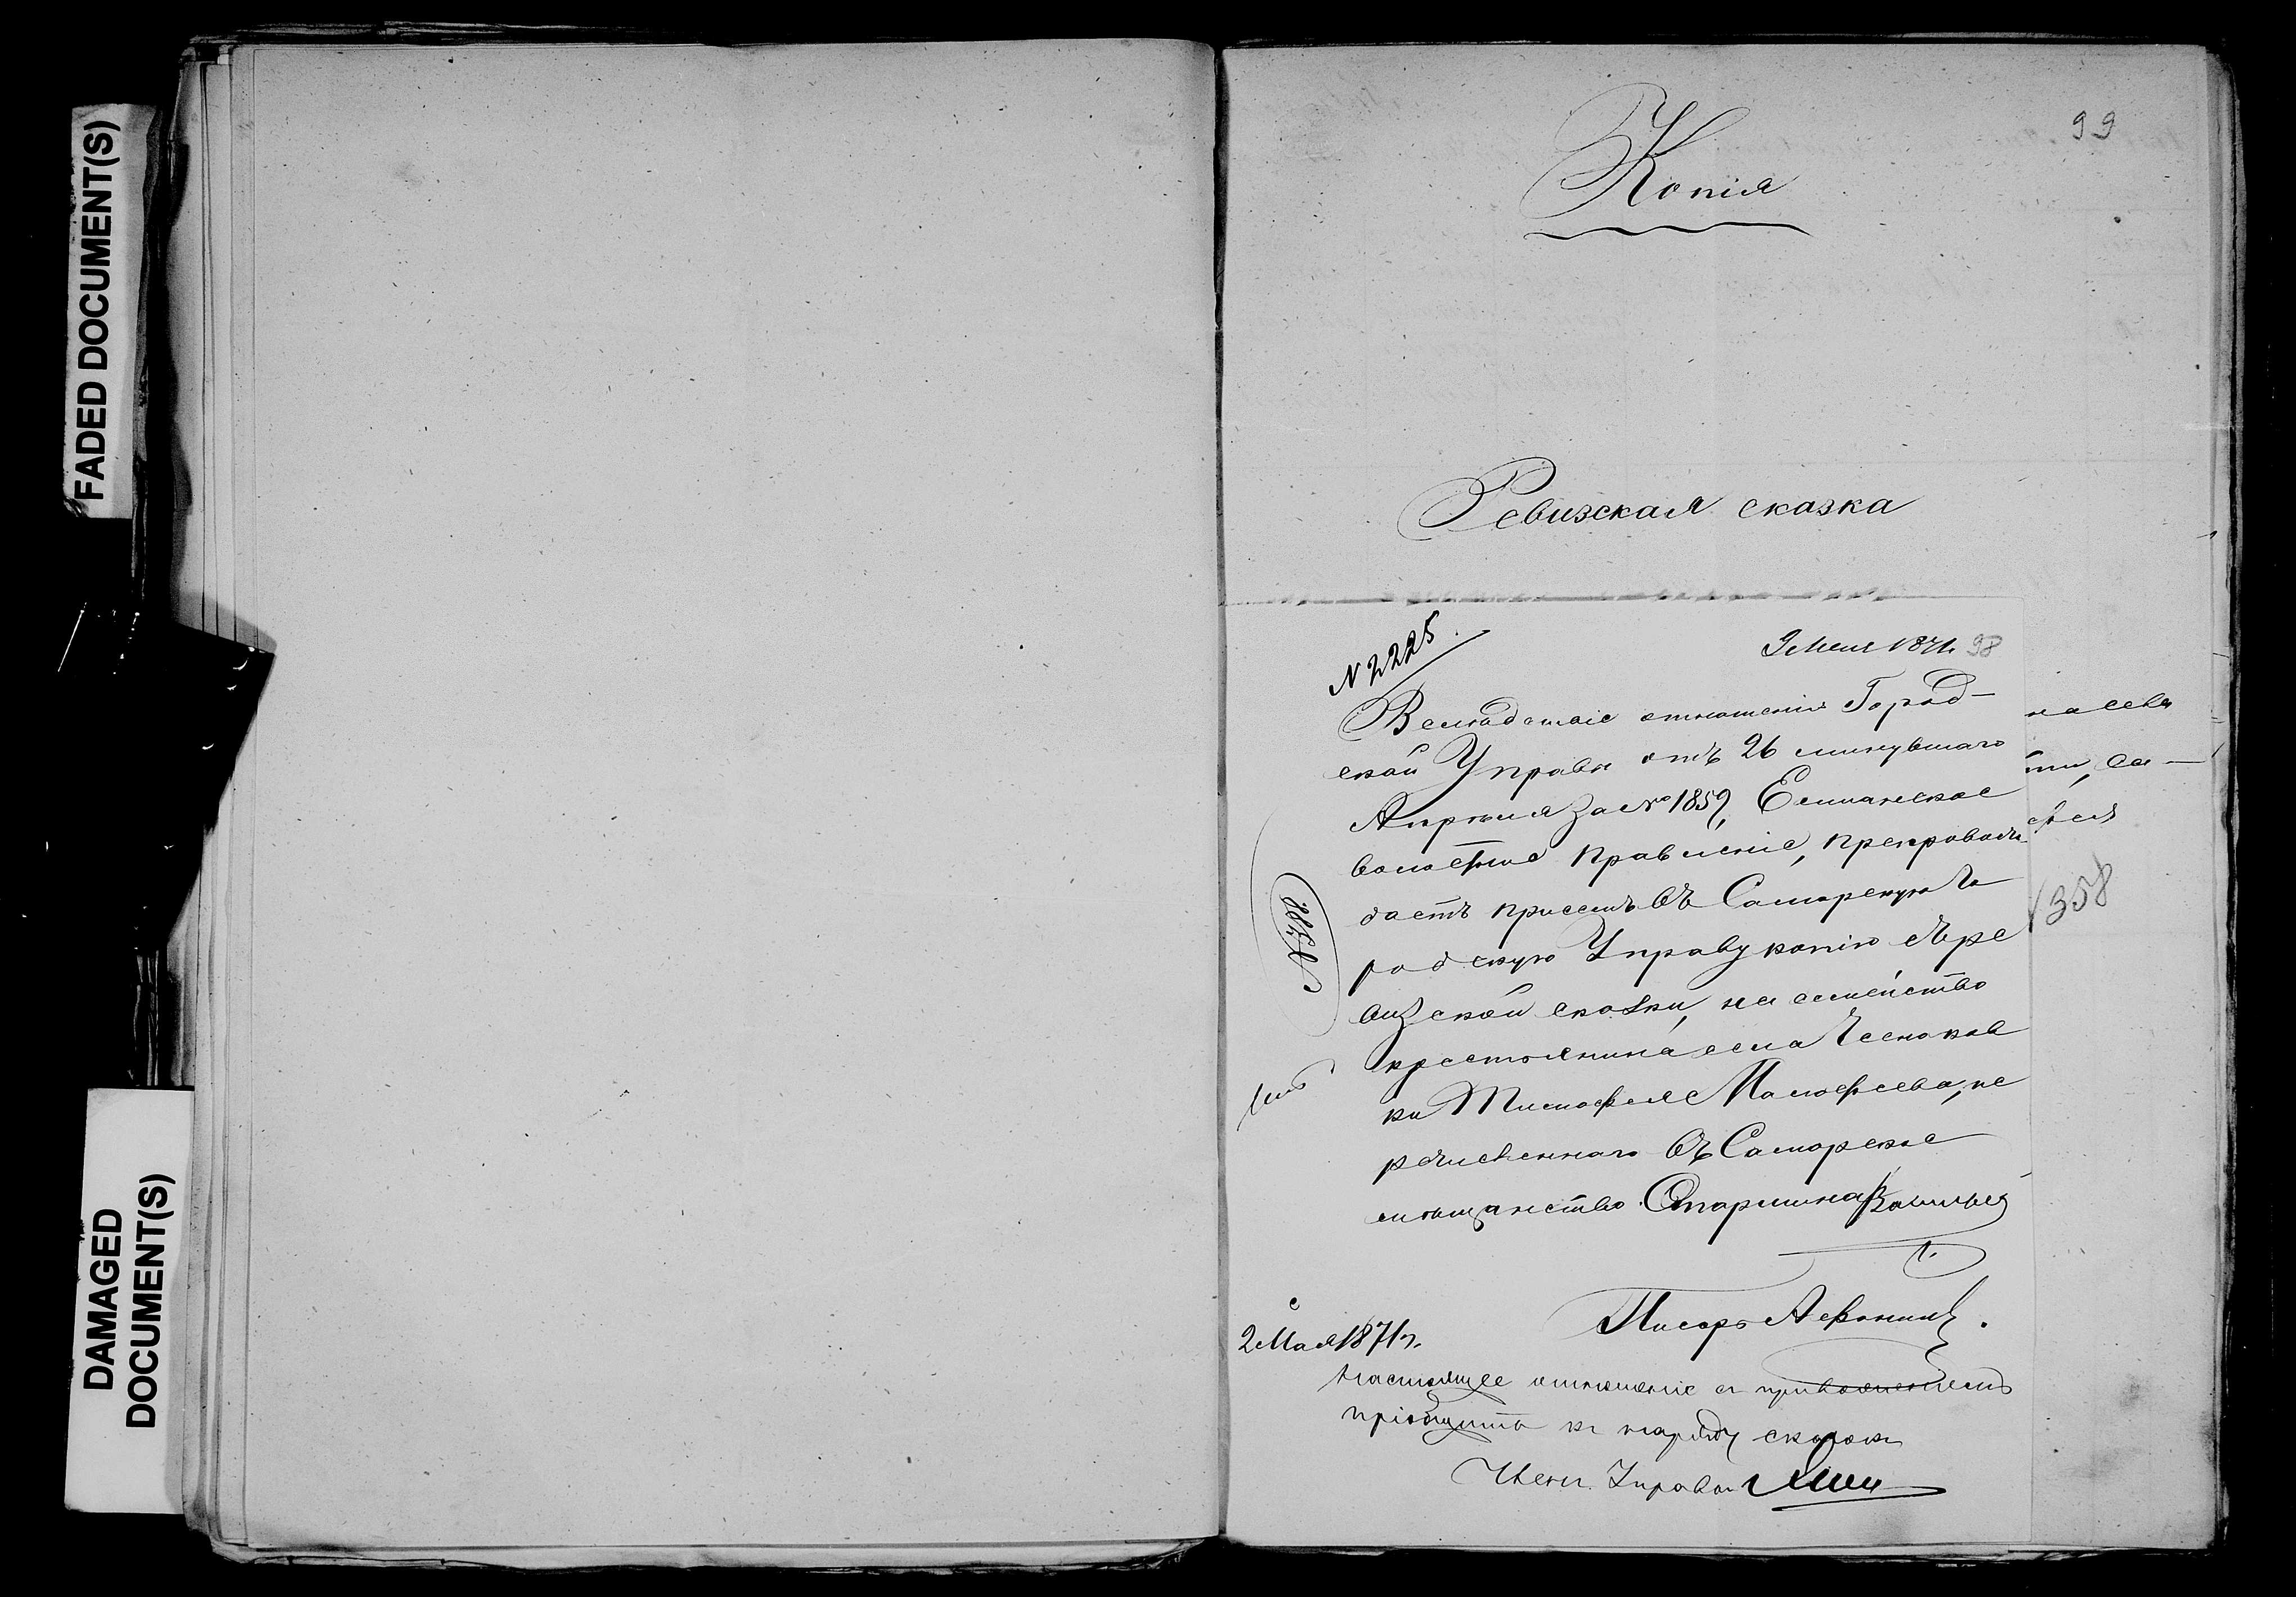 FADED DOCUMENT(S)
DAMAGED
DOCUMENT(S)
99
Копія
Ревизская сказка
N 2225
Мая 1871 98
Вслѣдствіе отношенія Город-
ской Управы отъ 26 минувшаго
Апрѣля за № 1859, Елшанское
волостное правленіе, препровож
даетъ присемъ въ Самарскую Го
родскую Управу копію съ ре
визской сказки, на семейство
крестьянина села Чеснаков
ки Тимофея Малофеева, пе
речисленнаго въ Самарское
мѣщанство. Старшина
Писарь Афонинъ.
358
2 Мая 1871 г.
Настоящее отношеніе съ приложеніемъ
пріобщить къ наряду сказокъ
Членъ Управы